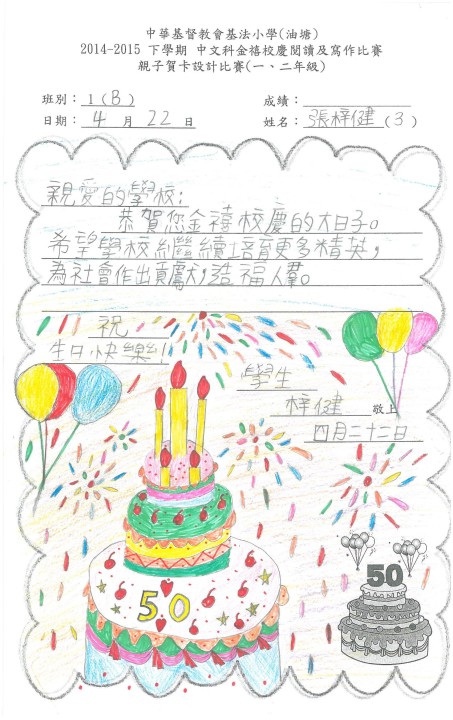 中華基督教會基法小學(油塘)
2014-2015 下學期 中文科金禧校慶閱讀及寫作比賽
親子賀卡設計比賽(一、二年級)
班別：1(B) 成績：
日期：4 月 22 日 姓名：張梓健(3)
親愛的學校：
恭賀您金禧校慶的大日子。
希望學校繼續培育更多精英，
為社會作出貢獻，造福人羣。
祝
生日快樂！
學生
梓健 敬上
四月二十二日
50
50